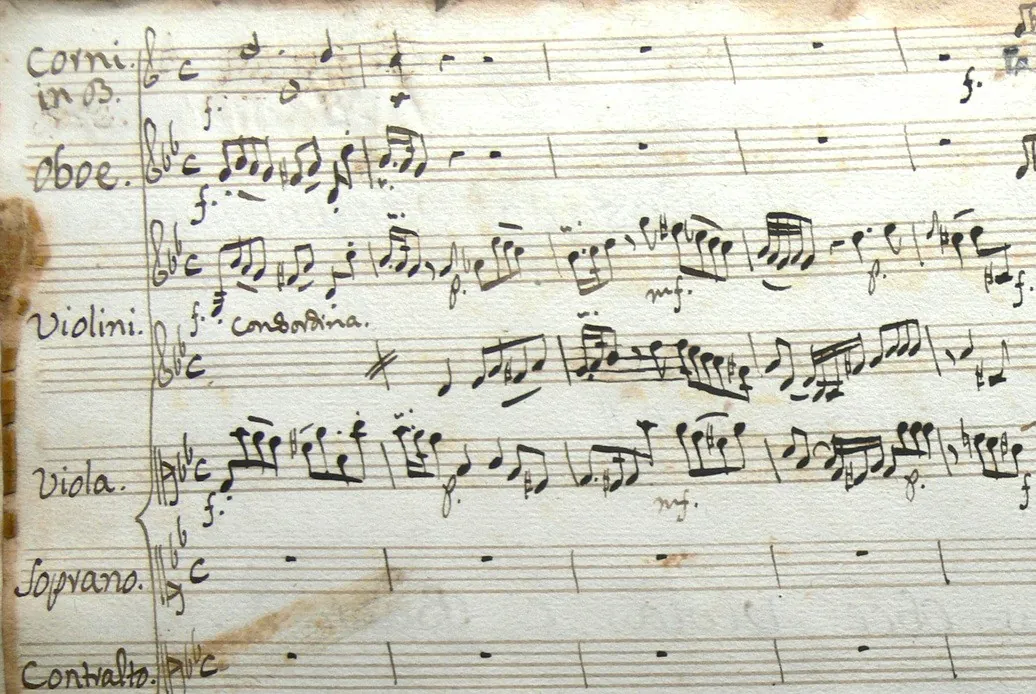 Corni.
in B.
f.
f.
Oboe.
f.
p.
mf.
p.
f.
Violini.
f. con sordina.
Viola.
f.
p.
mf.
p.
f
Soprano.
Contralto.